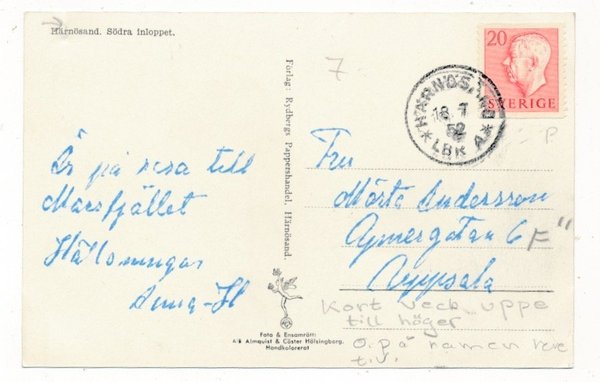 Härnösand. Södra inloppet.
7
20
SVERIGE
HÄRNÖSAND
18 7
52
* LBR A *
Är på resa till
Marsfjället
Hälsningar
Anna-
Förlag: Rydbergs Pappershandel, Härnösand.
Fru
Märta Andersson
6 F"
Uppsala
P.
Kort veck uppe
till höger
o. på namnen
t.v.
Foto & Ensamrätt:
A/B Almquist & Cöster Hälsingborg.
Handkolorerat